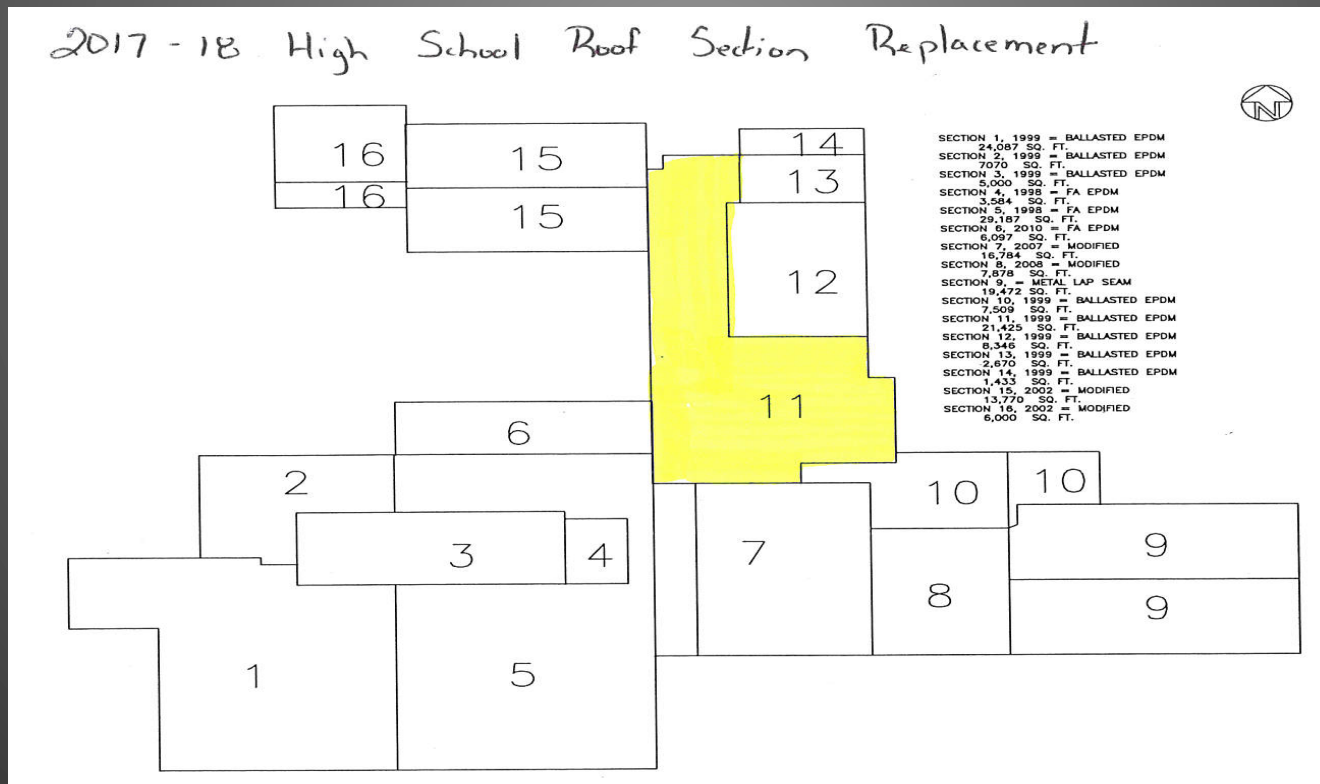 2017-18 High School Roof Section Replacement
N
SECTION 1, 1999 = BALLASTED EPDM
24,087 SQ. FT.
SECTION 2, 1999 = BALLASTED EPDM
7070 SQ. FT.
SECTION 3, 1999 = BALLASTED EPDM
5,000 SQ. FT.
SECTION 4, 1998 = FA EPDM
3,584 SQ. FT.
SECTION 5, 1998 = FA EPDM
29,187 SQ. FT.
SECTION 6, 2010 = FA EPDM
6,097 SQ. FT.
SECTION 7, 2007 = MODIFIED
16,784 SQ. FT.
SECTION 8, 2008 = MODIFIED
7,878 SQ. FT.
SECTION 9, = METAL LAP SEAM
19,472 SQ. FT.
SECTION 10, 1999 = BALLASTED EPDM
7,509 SQ. FT.
SECTION 11, 1999 = BALLASTED EPDM
21,425 SQ. FT.
SECTION 12, 1999 = BALLASTED EPDM
8,346 SQ. FT.
SECTION 13, 1999 = BALLASTED EPDM
2,670 SQ. FT.
SECTION 14, 1999 = BALLASTED EPDM
1,433 SQ. FT.
SECTION 15, 2002 = MODIFIED
13,770 SQ. FT.
SECTION 16, 2002 = MODIFIED
6,000 SQ. FT.
14
16
15
13
16
15
12
11
6
2
10
10
3
4
7
9
8
9
1
5